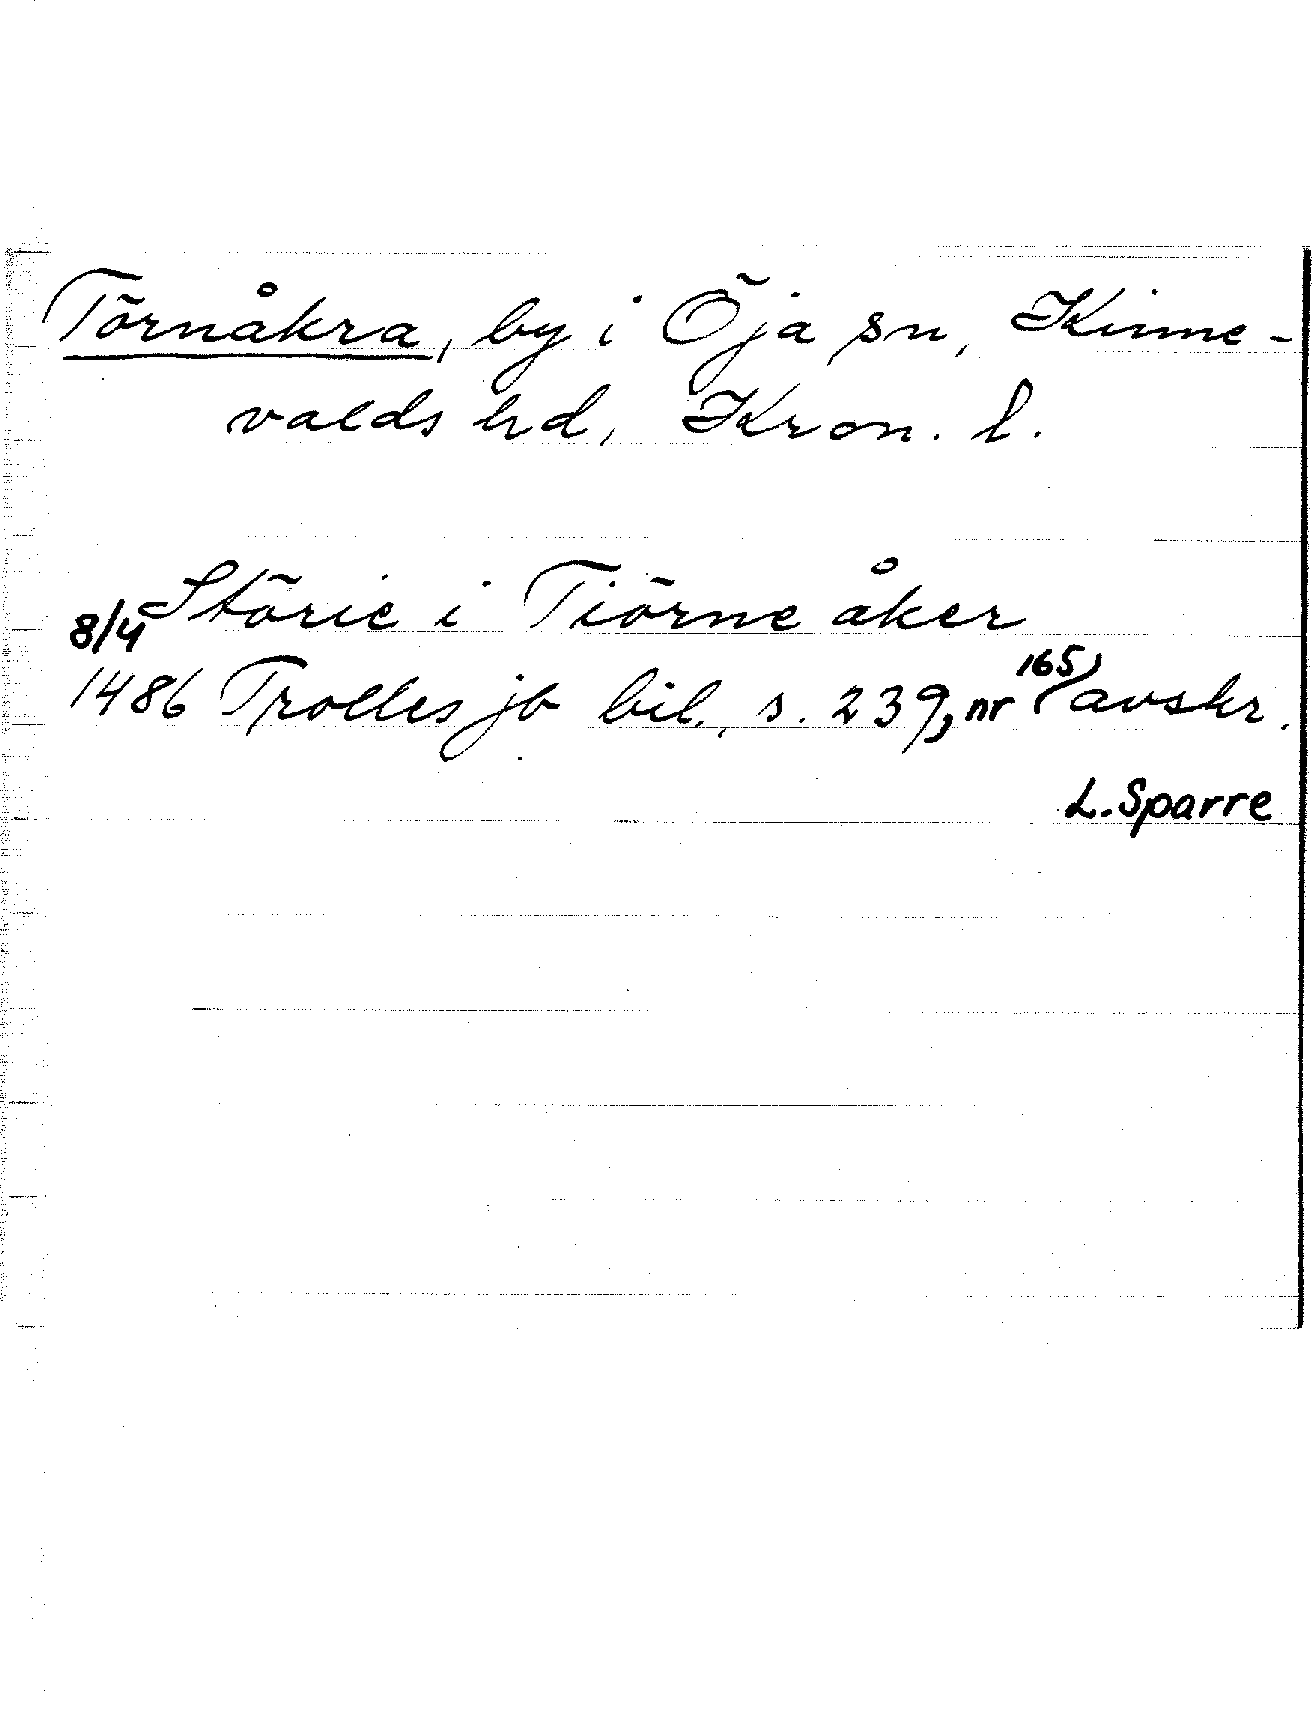 Törnåkra, by i Öja sn, Kinne-
valds hd, Kron. l.
Störie i Tiörne åker
8/4
1486 Trolles jb bil., s. 239, nr 165, avskr.
L. Sparre